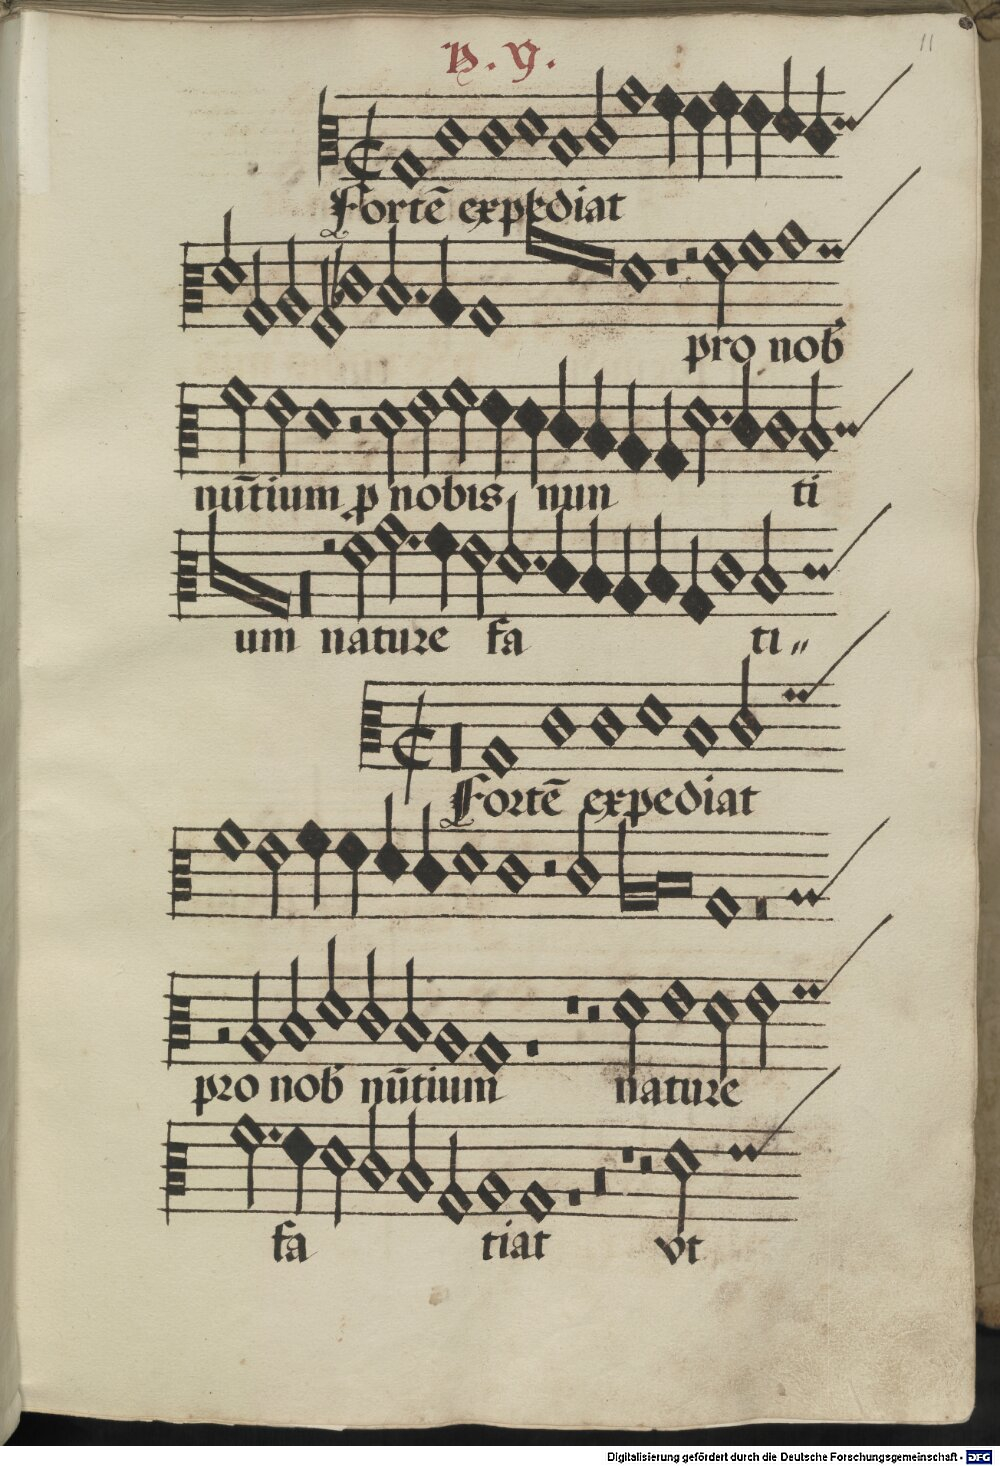 11
Fortē expediat
pro nob
nūtium p nobis nun ti
um nature fa ti〃
Fortē expediat
pro nob nūtium nature
fa tiat vt
Digitalisierung gefördert durch die Deutsche Forschungsgemeinschaft - DFG